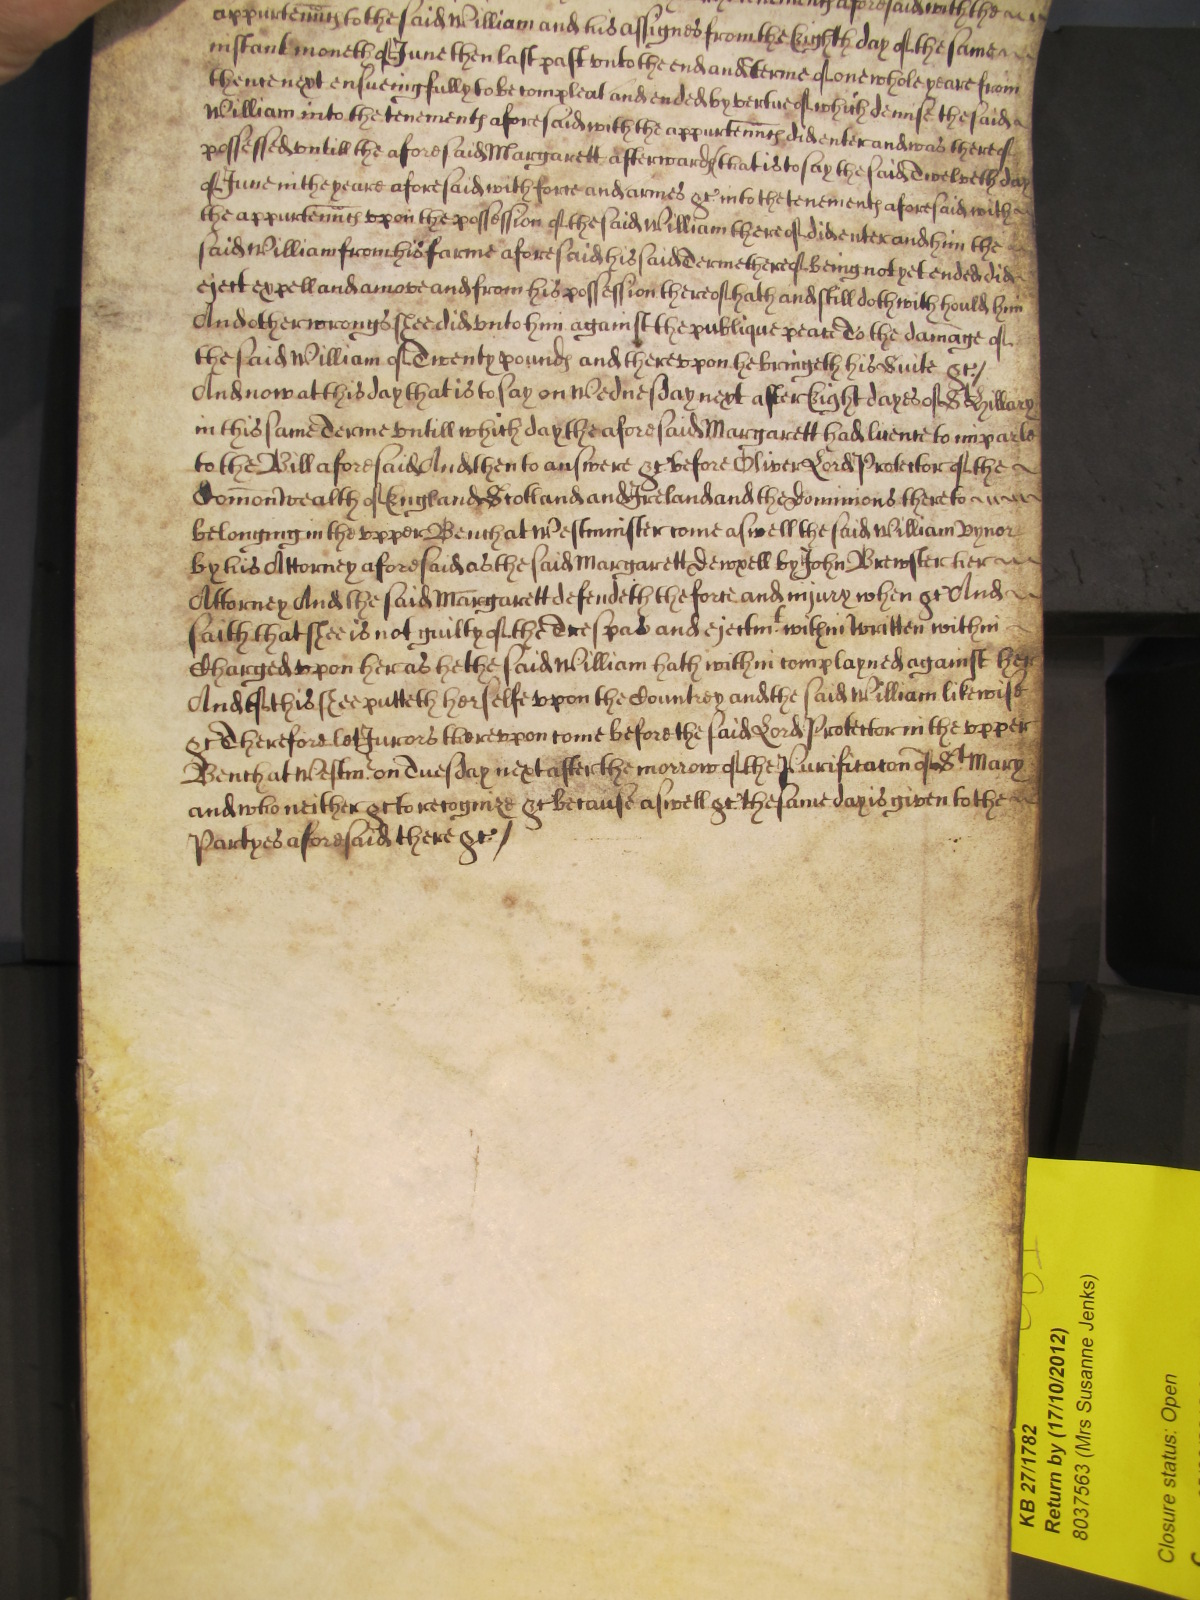 tenements aforesaid with the
appurtenn̄ts to the said William and his assignes from the Eighth day of the same
instant moneth of June then last past vnto the end and terme of one whole yeare from
thence next ensueing fully to be compleat and ended by vertue of which demise the said
William into the tenements aforesaid with the appurtenn̄ts did enter and was thereof
possessed vntill the aforesaid Margarett afterwards that is to say the said Twelveth day
of June in the yeare aforesaid with force and armes &c into the tenements aforesaid with
the appurtenn̄ts vpon the possession of the said William thereof did enter and him the
said William from his farme aforesaid his said Terme thereof being not yet ended did
eject expell and amove and from his possession thereof hath and still doth with hould him
And other wrongs shee did vnto him against the publique peace To the damage of
the said William of Twenty pounds and therevpon he bringeth his Suite &c/
And now at this day that is to say on Wednesday next after Eight dayes of St Hillary
in this same Terme vntill which day the aforesaid Margarett had licence to imparle
to the Bill aforesaid And then to answere &c before Oliver Lord Protector of the
Com̄onwealth of England Scotland and Ireland and the Dominions thereto
belonging in the vpper Bench at Westminster come aswell the said William Vynor
by his Attorney aforesaid as the said Margarett Dewxell by John Brewster her
Attorney And the said Margarett defendeth the force and injury when &c And
saith that shee is not guilty of the Trespas and ejectmt within written within
Charged vpon her as he the said William hath within complayned against her
And of this shee putteth her selfe vpon the Countrey and the said William likewise
&c Therefore let Jurors therevpon come before the said Lord Protector in the vpper
Bench at Westm̄ on Tuesday next after the morrow of the Purificac̄on of St Mary
and who neither &c to recognize &c Because aswell &c the same day is given to the
Partyes aforesaid there &c/
KB 27/1782
Return by (17/10/2012)
8037563 (Mrs Susanne Jenks)
Closure status: Open